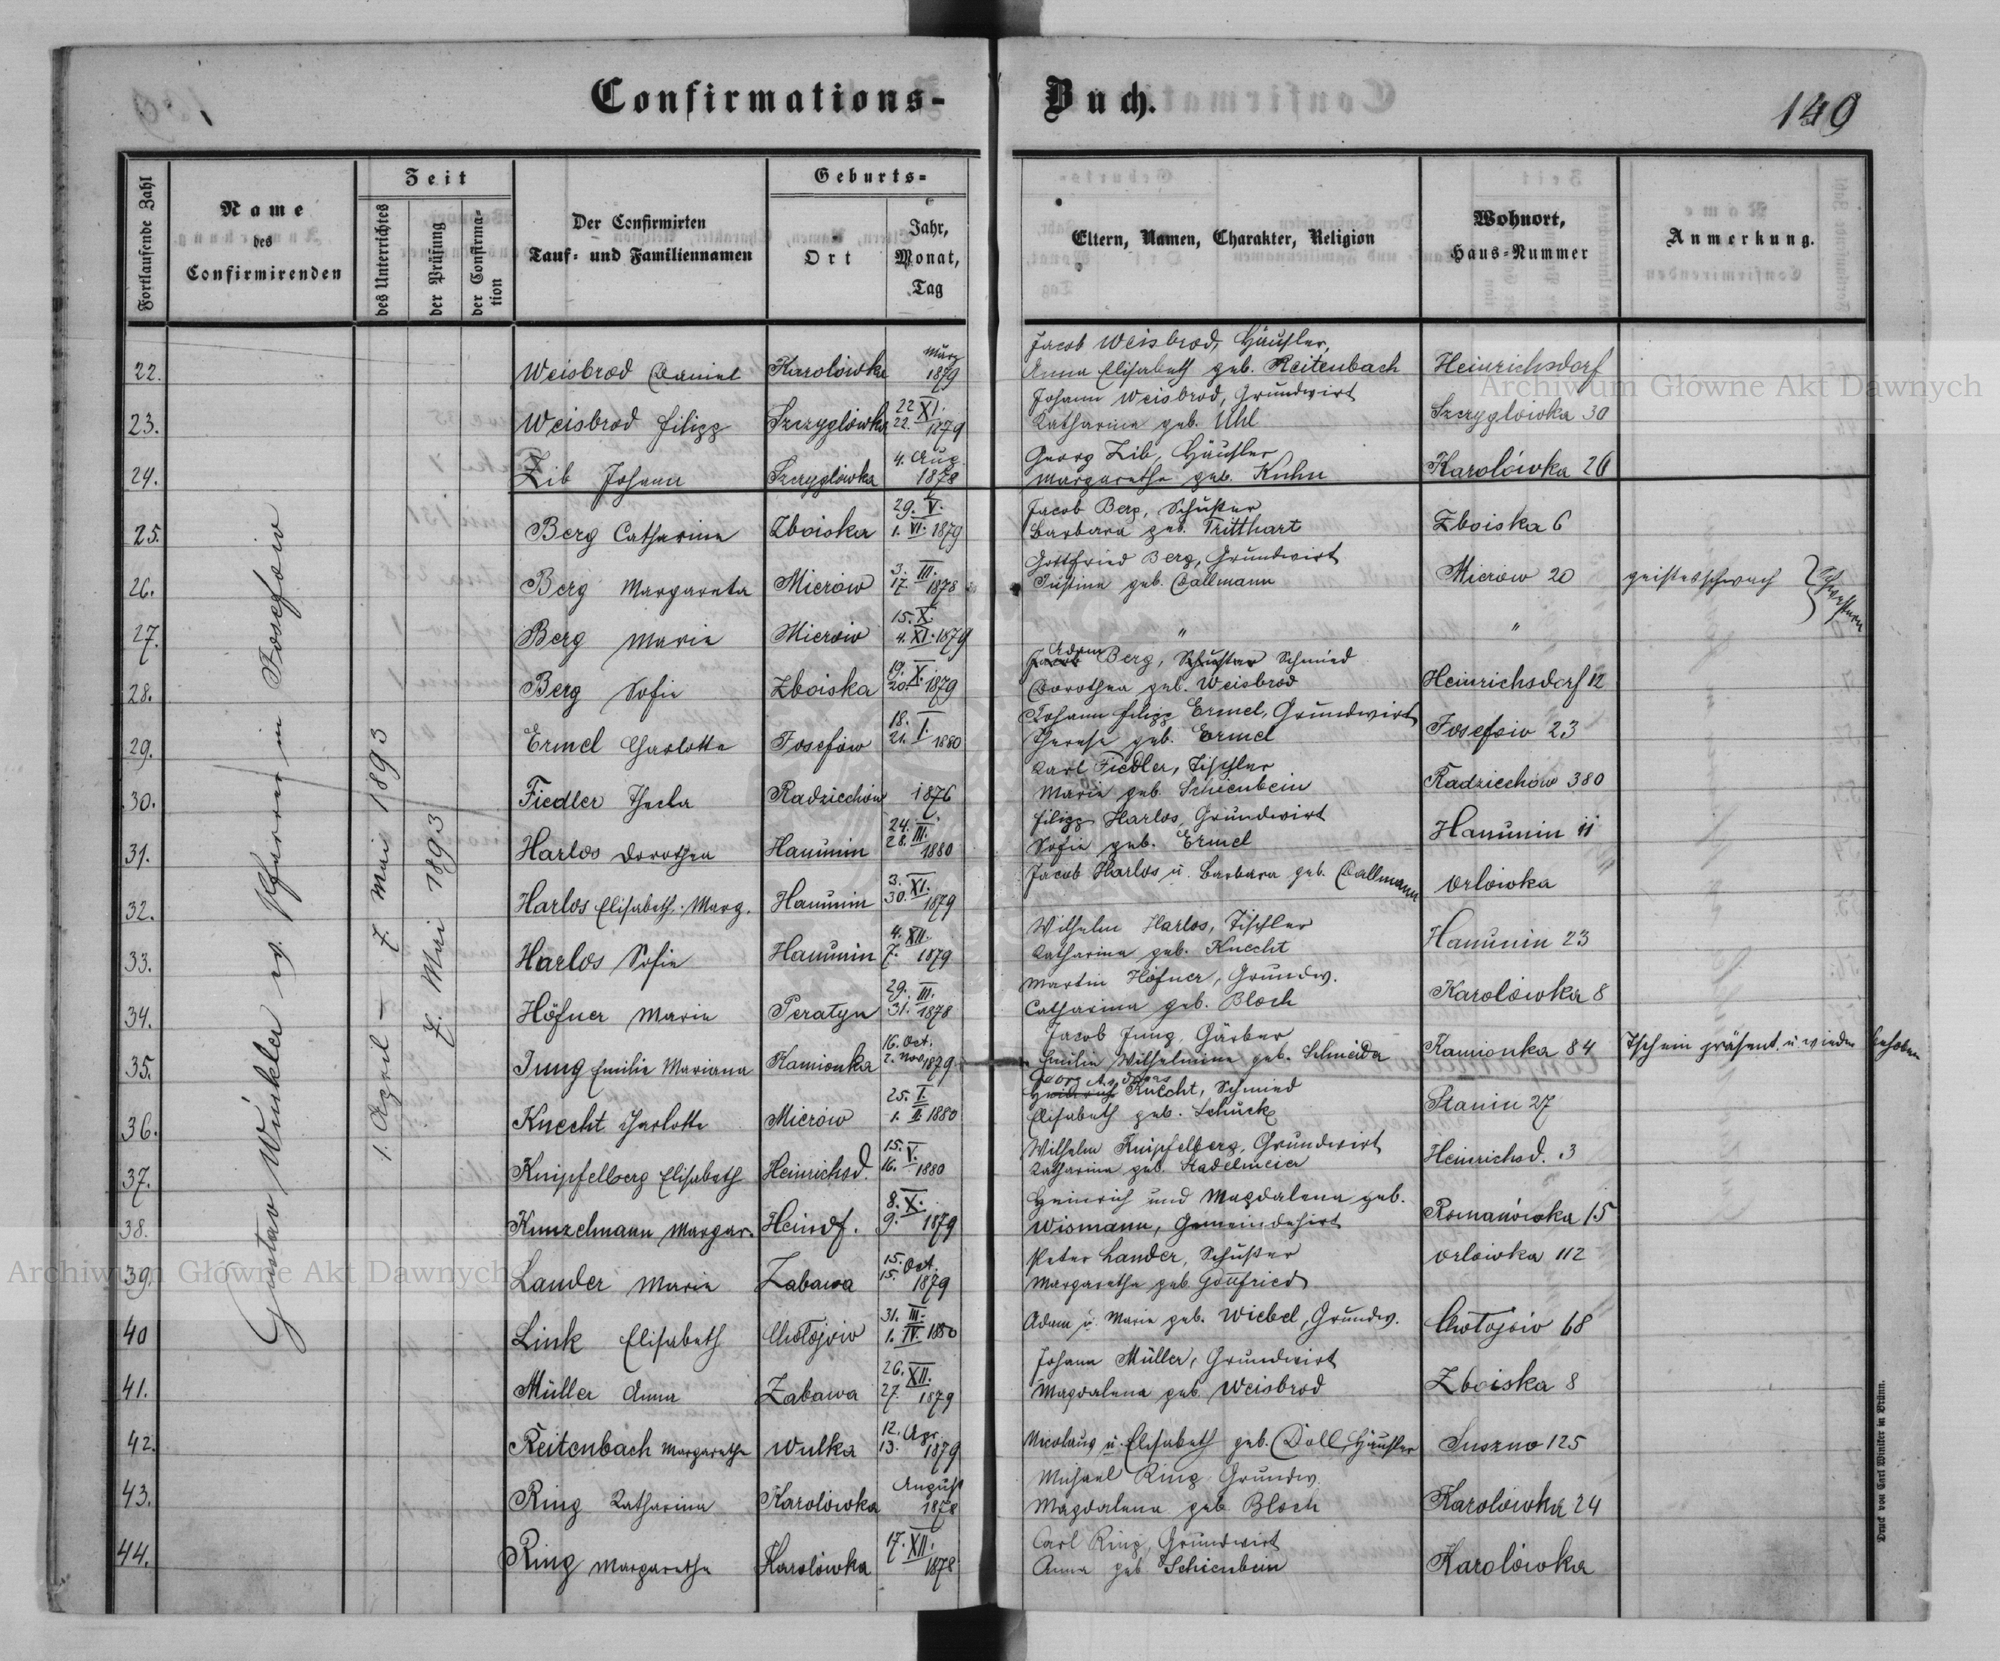 Confirmations-Buch.
149
Fortlaufende Zahl
Name
des
Confirmirenden
Zeit
des Unterrichtes
der Prüfung
der Confirma-
tion
Der Confirmirten
Tauf- und Familiennamen
Geburts-
Ort
Jahr,
Monat,
Tag
Eltern, Namen, Charakter, Religion
Wohnort,
Haus-Nummer
Anmerkung.
Gustav Winkler ev. Pfarrer in Josefow
1. April — 7. Mai 1893
7. Mai 1893
22. Weisbrod Daniel Karolówka März 1879
Jacob Weisbrod, Häusler,
Anna Elisabeth geb. Reitenbach Heinrichsdorf
23. Weisbrod Filipp Szczyglówka 22. XI. 22. 1879
Johann Weisbrod, Grundwirt
Katharina geb. Uhl Szczyglówka 30
24. Zib Johann Szczyglówka 4. Aug. 1878
Georg Zib, Häusler
Margarethe geb. Kuhn Karolówka 26
25. Berg Catharina Zboiska 29. V. 1. VI. 1879
Jacob Berg, Schuster
Barbara geb. Tritthart Zboiska 6
26. Berg Margareta Mierów 3. III. 17. 1878
Gottfried Berg, Grundwirt
Justine geb. Dallmann Mierów 20 geistesschwach } Schwestern
27. Berg Marie Mierów 15. X. 4. XI. 1879 " "
28. Berg Sofie Zboiska 19. X. 20. 1879
Jacob Adam Berg, Schuster Schmied
Dorothea geb. Weisbrod Heinrichsdorf 12
29. Ermel Charlotte Josefów 18. I. 21. 1880
Johann Filipp Ermel, Grundwirt
Therese geb. Ermel Josefów 23
30. Fiedler Thecla Radziechów 1876
Carl Fiedler, Tischler
Marie geb. Schienbein Radziechów 380
31. Harlos Dorothea Hanunin 24. III. 28. 1880
Filipp Harlos, Grundwirt
Sofie geb. Ermel Hanunin 11
32. Harlos Elisabeth Marg. Hanunin 3. XI. 30. 1879
Jacob Harlos u. Barbara geb. Dallmann Orlówka
33. Harlos Sofie Hanunin 4. XII. 7. 1879
Wilhelm Harlos, Tischler
Katharina geb. Knecht Hanunin 23
34. Höfner Marie Peratyn 29. III. 31. 1878
Martin Höfner, Grundw.
Catharina geb. Bloch Karolówka 8
35. Jung Emilie Mariana Kamionka 16. Oct. 2. Nov. 1879
Jacob Jung, Gärber
Emilie Wilhelmine geb. Schneider Kamionka 84 präsent. u. wieder behoben
36. Knecht Charlotte Mierów 25. I. 1. II. 1880
Georg Heinrich Knecht, Schmied
Elisabeth geb. Schück Stanin 27
37. Knipfelberg Elisabeth Heinrichsd. 15. V. 16. 1880
Wilhelm Knipfelberg, Grundwirt
Katharina geb. Stadelmeier Heinrichsd. 3
38. Kunzelmann Margar. Heindf. 8. X. 9. 1879
Heinrich und Magdalena geb.
Wismann, Gemeindehirt Romanówka 15
39. Lander Marie Zabawa 15. Oct. 15. 1879
Peter Lander, Schuster
Margaretha geb. Gottfried Orlówka 112
40 Link Elisabeth Chołojów 31. III. 1. IV. 1880
Adam u. Marie geb. Wiebel, Grundw. Chołojów 68
41. Müller Anna Zabawa 26. XII. 27. 1879
Johann Müller, Grundwirt
Magdalena geb. Weisbrod Zboiska 8
42. Reitenbach Margarethe Wulka 12. Apr. 13. 1879
Nicolaus u. Elisabeth geb. Doll, Häusler Suszno 125
43. Ring Katharina Karolówka August 1878
Michael Ring Grundw.
Magdalena geb Bloch Karolówka 24
44. Ring Margarethe Karolówka 17. XII. 1878
Carl Ring, Grundwirt
Anna geb Schienbein Karolówka
Druck von Carl Winiker in Brünn.
Archiwum Główne Akt Dawnych
Archiwum Główne Akt Dawnych